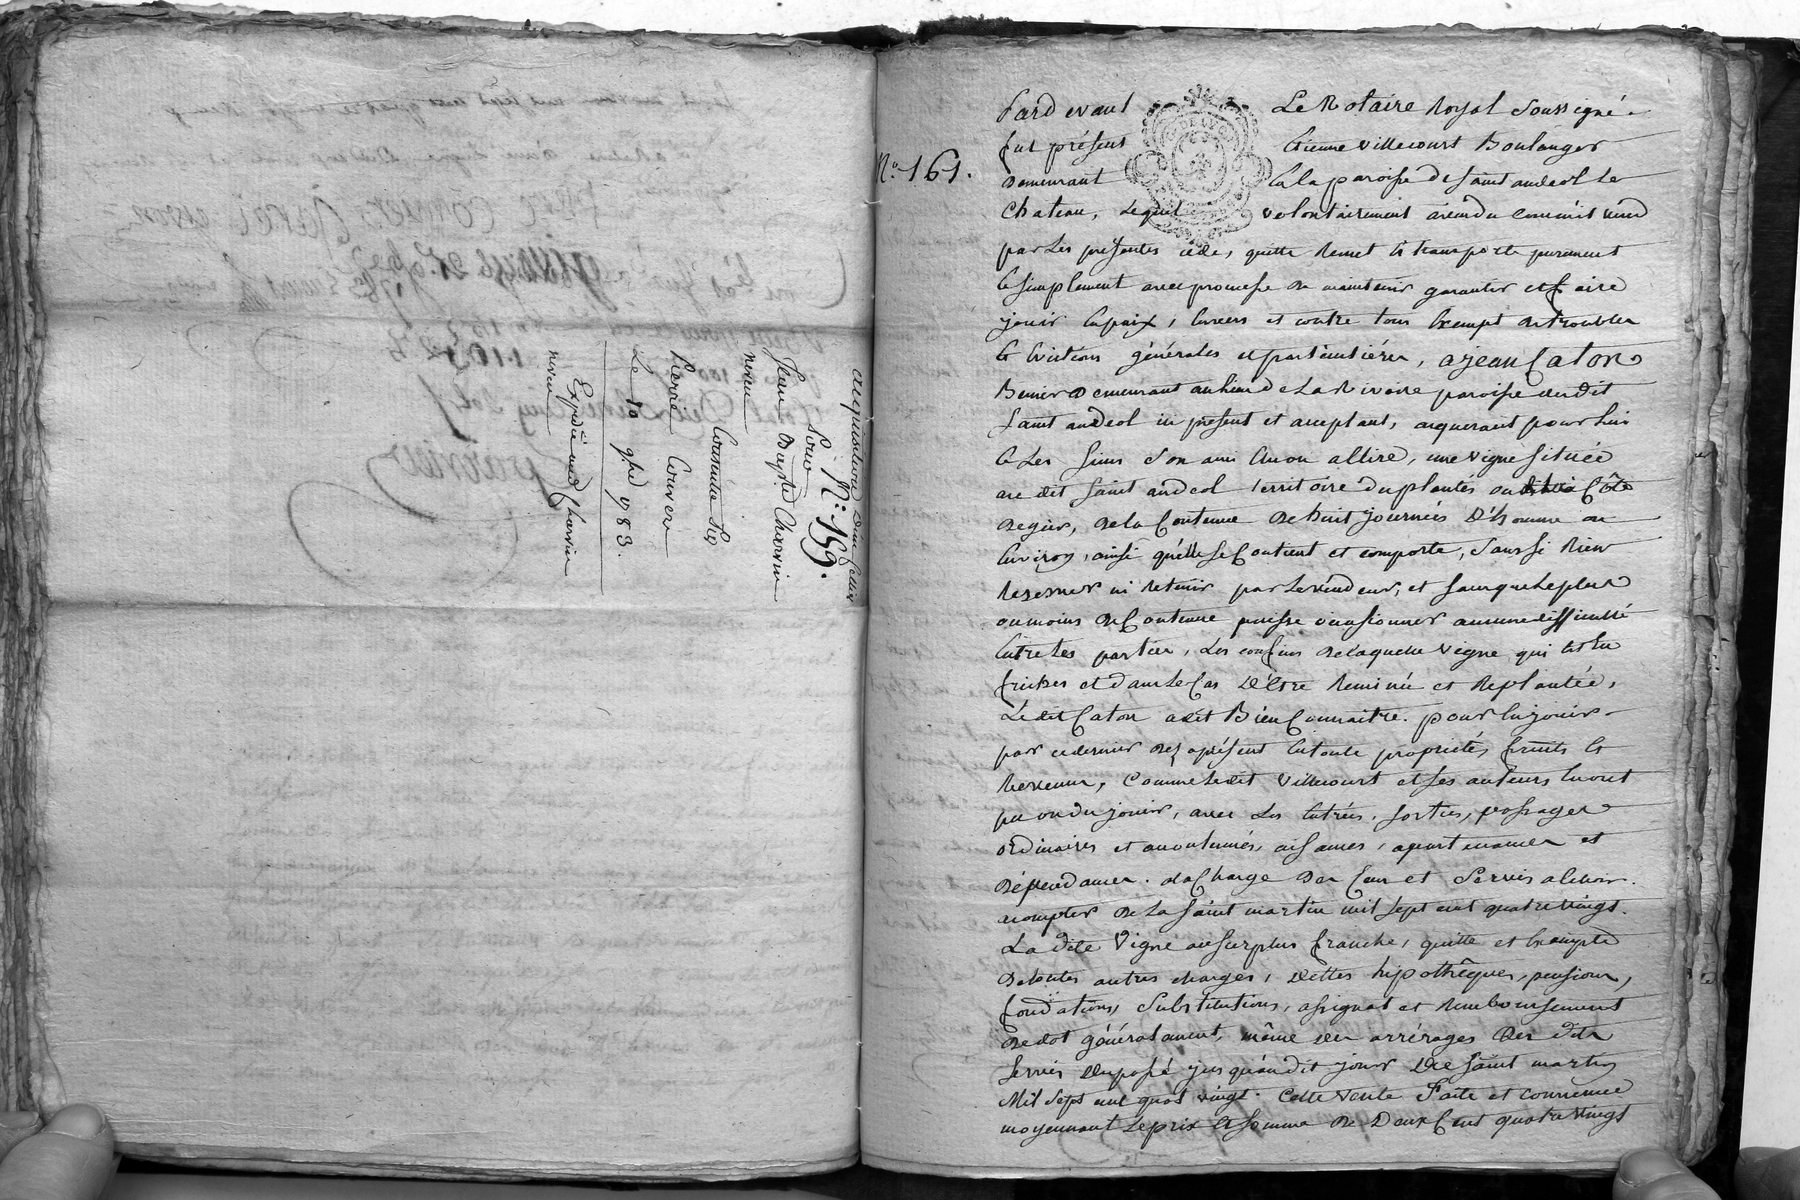 acquisition d'un cellier
N.° 159.
pour
Jean Bapt.e Charvin
neveu
Consentie par
Pierre Couvert
Le 10 9bre 1783.
Expédié aud. Charvin
neveu
N.° 161.
Pardevant Le Notaire Royal soussigné
fut présent Etienne villecourt Boulanger
demeurant en la paroisse de saint andeol le
chateau, Lequel volontairement a vendu comme il vend
par Les présentes cède, quitte remet et transporte purement
et simplement avec promesse de maintenir garantir et faire
jouir en paix, envers et contre tous Exempt de troubles
et Evictions générales et particulières, a jean Caton
demeurant au lieu de La Rivoire paroisse dudit
saint andeol ici present et acceptant, acquerant pour Lui
et Les siens son ami Elu ou a Elire, une vigne située
au dit saint andeol territoire du plantés ou Côte
de gier, de la Contenue de huit journées d'homme ou
Environ, ainsi qu'elle se Contient et comporte, sans se Rien
reserver ni retenir par Le vendeur, et sans que Le plus
ou moins de Contenue puisse occasionner aucune difficulté
Entre Les parties, Les confins de laquelle vigne qui est en
friches et dans Le Cas d'être Reminée et Replantée,
Ledit Caton a dit Bien Connaitre. pour En jouir
par ce dernier dez aprésent En toute propriété, fruits et
Revenus, Comme Ledit villecourt et ses auteurs En ont
pu ou du jouir, avec Les Entrées, sorties, passages
ordinaires et accoutumés, aisances, apartenances et
dépendances. a la Charge des Cens et Servis a Echoir
a compter de La saint martin mil sept cent quatre vingt.
La dite Vigne au surplus franche, quitte et Exempte
de toutes autres charges, dettes hipothèques, pensions,
fondations, Substitutions, assignat et remboursement
de dot généralement, même des arrérages des dits
servis du passé jusqu'audit jour de saint martin
Mil sept cent quat vingt. Cette vente Faite et convenue
moyennant Le prix et somme de Deux Cent quatre vingt